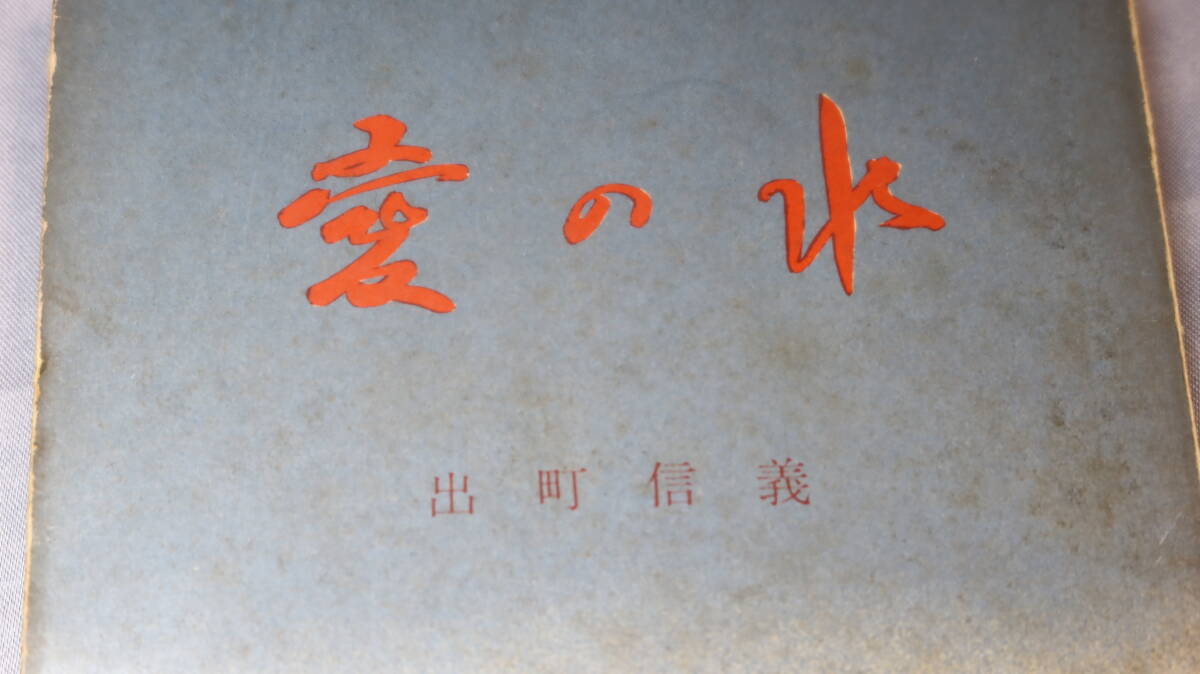 愛の水
出町信義